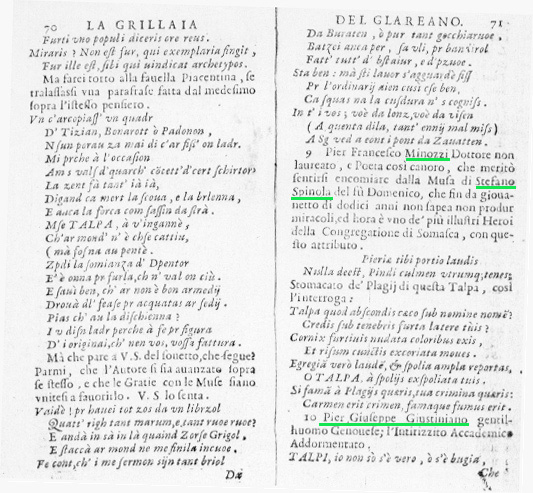 70 LA GRILLAIA
Furti vno populi diceris ore reus.
Miraris? Non est fur, qui exemplaria fingit,
Fur ille est, sibi qui uindicat archetypos.
Ma farei torto alla fauella Piacentina, se
tralasciassi vna parafrase fatta dal medesimo
sopra l'istesso pensiero.
Vn c'arcopiass' vn quadr
D' Tizian, Bonarott ò Padonon,
N'sun porau za mai di c'ar siss' on ladr.
Mi prche à l'occasion
Am s vals d'quarch'
La zent sà tant' ià ià,
Digand ca mert la scoua, e la brlenna,
E auca la forca com sassin da srà.
Mse TALPA, à v'ingannè,
Ch'ar mond' n' è chse cattiu,
(mà sosna au pentè.
Zpdi la somianza d' Dpentor
E' è onna pr furla, ch n' val on ciù.
E saui ben, ch' ar non è bon armedij
Drouà dl' fease pr acquatas ar sedij.
Pias ch' au la dischienna?
I v disn ladr perche à se pr figura
D' i original, ch' non vos, vossa fattura.
Mà che pare a V.S. del sonetto, che segue?
Parmi, che l'Autore si sia auanzato sopra
se stesso, e che le Gratie con le Muse siano
vnite si a fauorirlo. V.S. lo senta.
Vaidè? pr hauei tot zos da vn librzol
Quatr' righ tant marum, e tant ruoe ruoe?
E andà in sà in là quaind Zorse Grigol,
E staccà ar mond ne me finila incuoe.
Fe cont, ch' i me sermon sijn tant briol
Da
DEL GLAREANO. 71
Da Buraten, ò pur tant gocchiaruoe,
Batzei anca per, sa vli, pr banсirol
Fatt' tutt' d' bstaiur, e d' pzuoe.
Sta ben: mà sti lauor s'agguardè siss
Pr l'ordinarij aion cusi cse ben,
Ca squas na la cusdura n' s cogniss.
In t' i vos; voè da lonz, voè da visin
(A quenta dila, tant' ennij mal miss)
A Sg ved a eont i pont da Zauatten.
9 Pier Francesco Minozzi Dottore non
laureato, e Poeta così canoro, che meritò
sentirsi encomiare dalla Musa di Stefano
Spinola del fù Domenico, che fin da gioua-
netto di dodici anni non sapea non produr
miracoli, ed hora è vno de' più illustri Heroi
della Congregatione di Somasca, con que-
sto attributo.
Pieriæ tibi portio laudis
Nulla deest, Pindi culmen vtrumq; tenes;
Stomacato de' Plagij di questa Talpa, così
l'interroga:
Talpa quod abscondis cæco sub nomine nomë?
Credis sub tenebris furta latere tuis?
Cornix furtiuis nudata coloribus exis,
Et risum cunctis excoriata moues.
Egregiã verò laudẽ, & spolia ampla reportas,
O TALPA, à spolijs expoliata tuis.
Si famã à Plagijs quæris, tua crimina quæris:
Carmen erit crimen, famaque fumus erit.
10 Pier Giuseppe Giustiniano gentil-
huomo Genouese; l'Intirizzito Accademico
Addormentato.
TALPI, io non sò s'è vero, ò s'è bugia,
Che